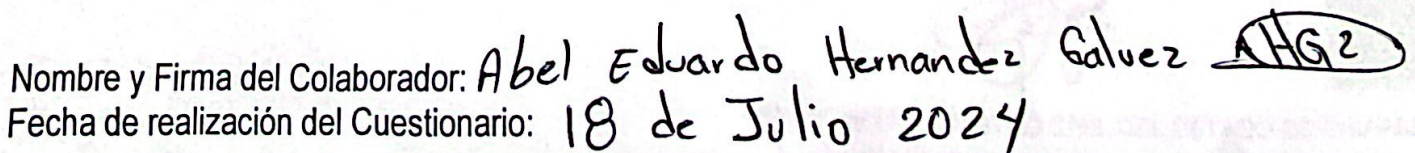 Nombre y Firma del Colaborador: Abel Eduardo Hernandez Galvez AHGz
Fecha de realización del Cuestionario: 18 de Julio 2024